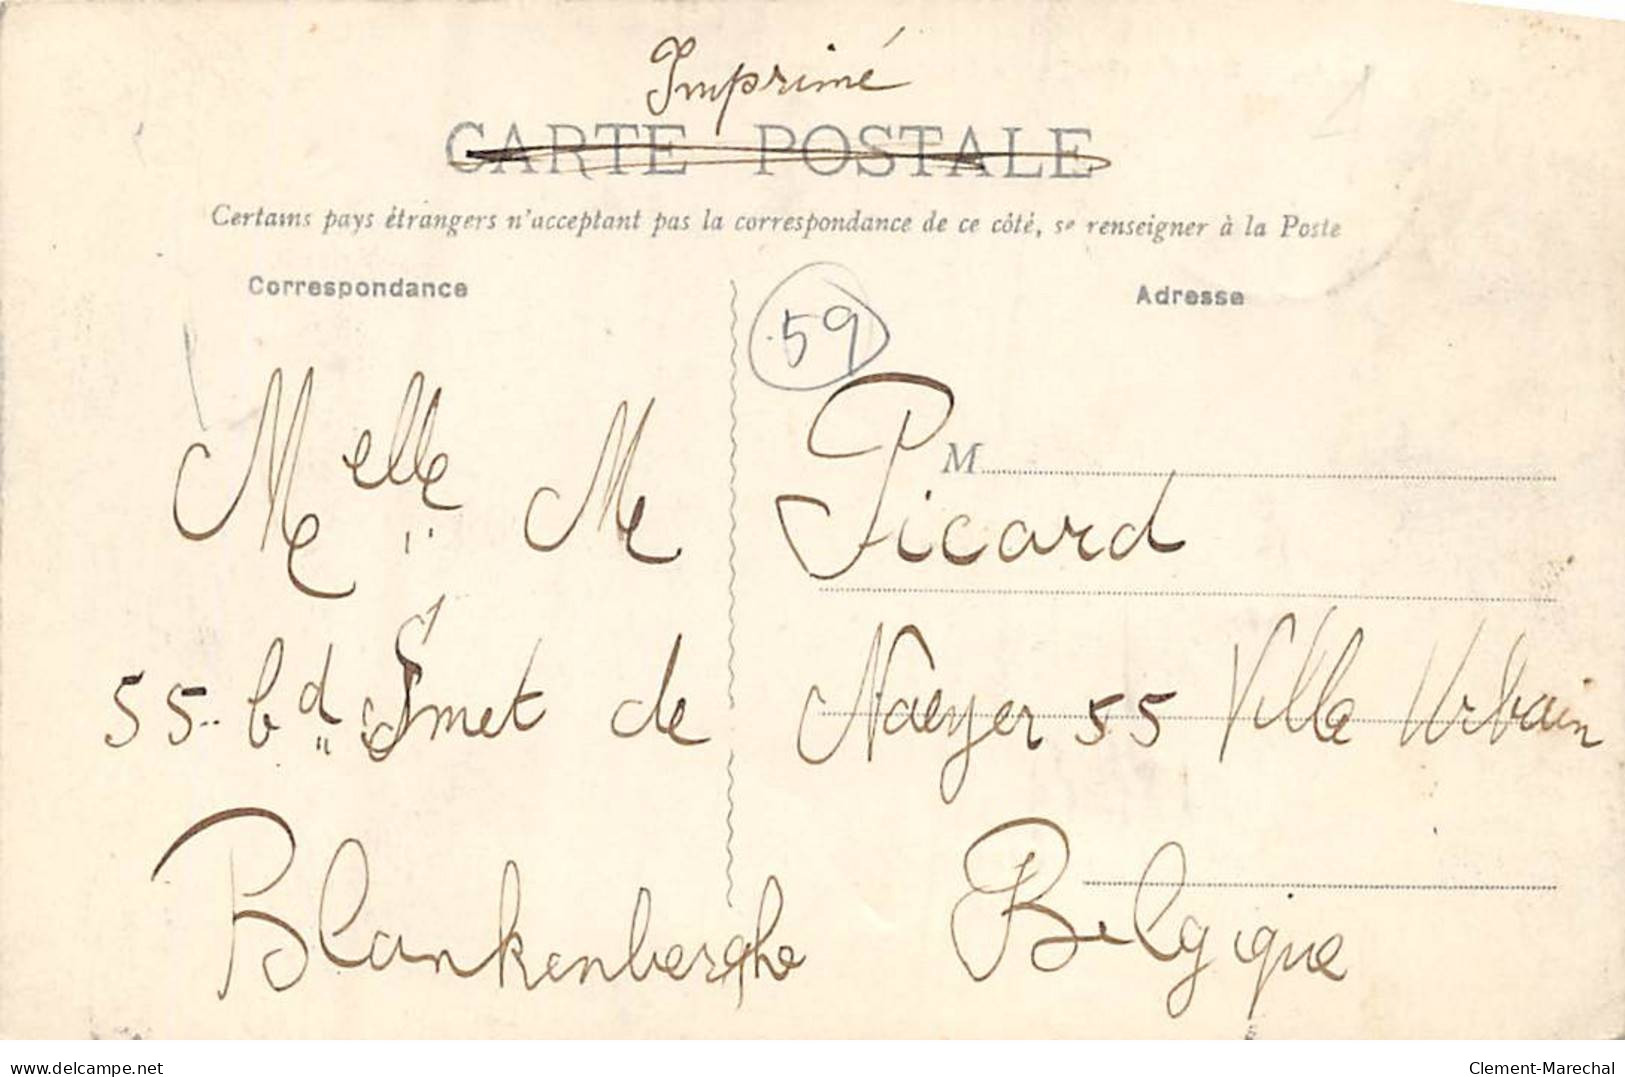 Imprimé
CARTE POSTALE
Certains pays étrangers n'acceptant pas la correspondance de ce côté, se renseigner à la Poste
Correspondance
Adresse
59
M
Melle M Picard
55 bd Smet de Naeyer 55 Ville Urbain
Blankenberghe Belgique
www.delcampe.net
Clement-Marechal